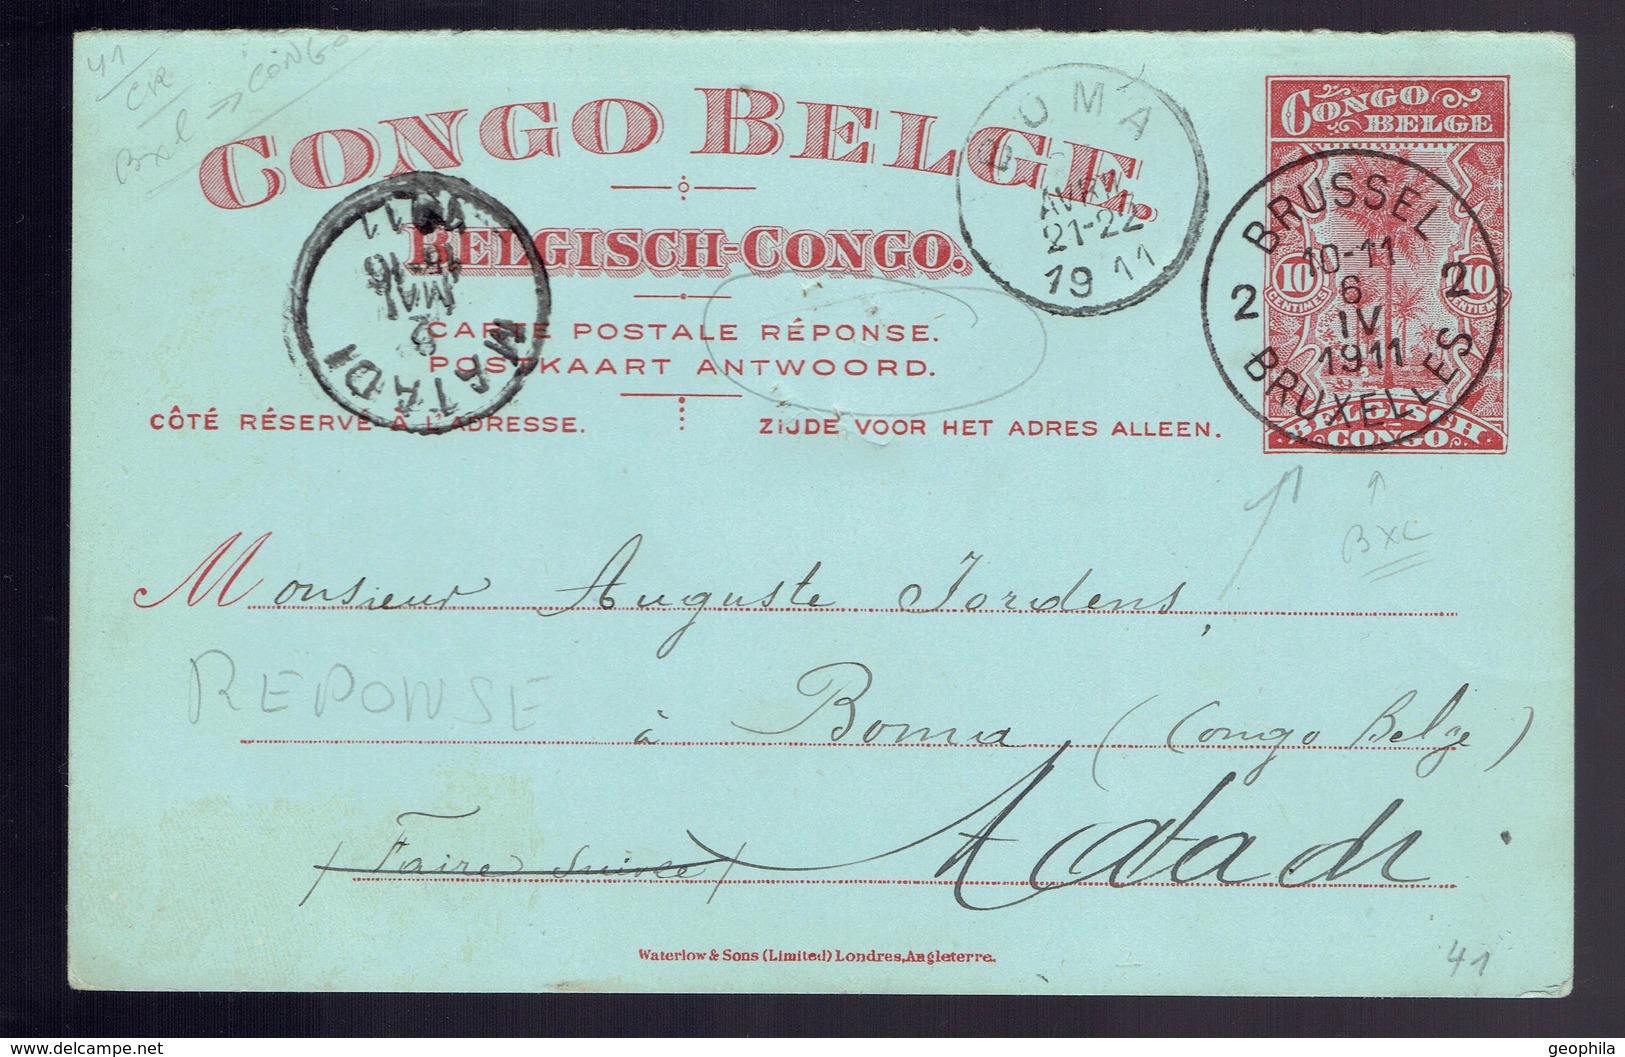 41
CR
Bxl → CONGO
CONGO BELGE.
BELGISCH-CONGO.
CARTE POSTALE RÉPONSE.
POSTKAART ANTWOORD.
CÔTÉ RÉSERVÉ À L'ADRESSE.
ZIJDE VOOR HET ADRES ALLEEN.
MATADI
2
MAI
15-16
1911
OMA
AVRIL
21-22
1911
CONGO
BELGE
10
CENTIMES
10
CENTIEMEN
BELGISCH
CONGO
BRUSSEL
10-11
6
IV
1911
2 2
BRUXELLES
BXL
Monsieur Auguste Jordens,
REPONSE
à Boma (Congo Belge)
(Faire suivre) Matadi.
Waterlow & Sons (Limited) Londres, Angleterre.
41
geophila